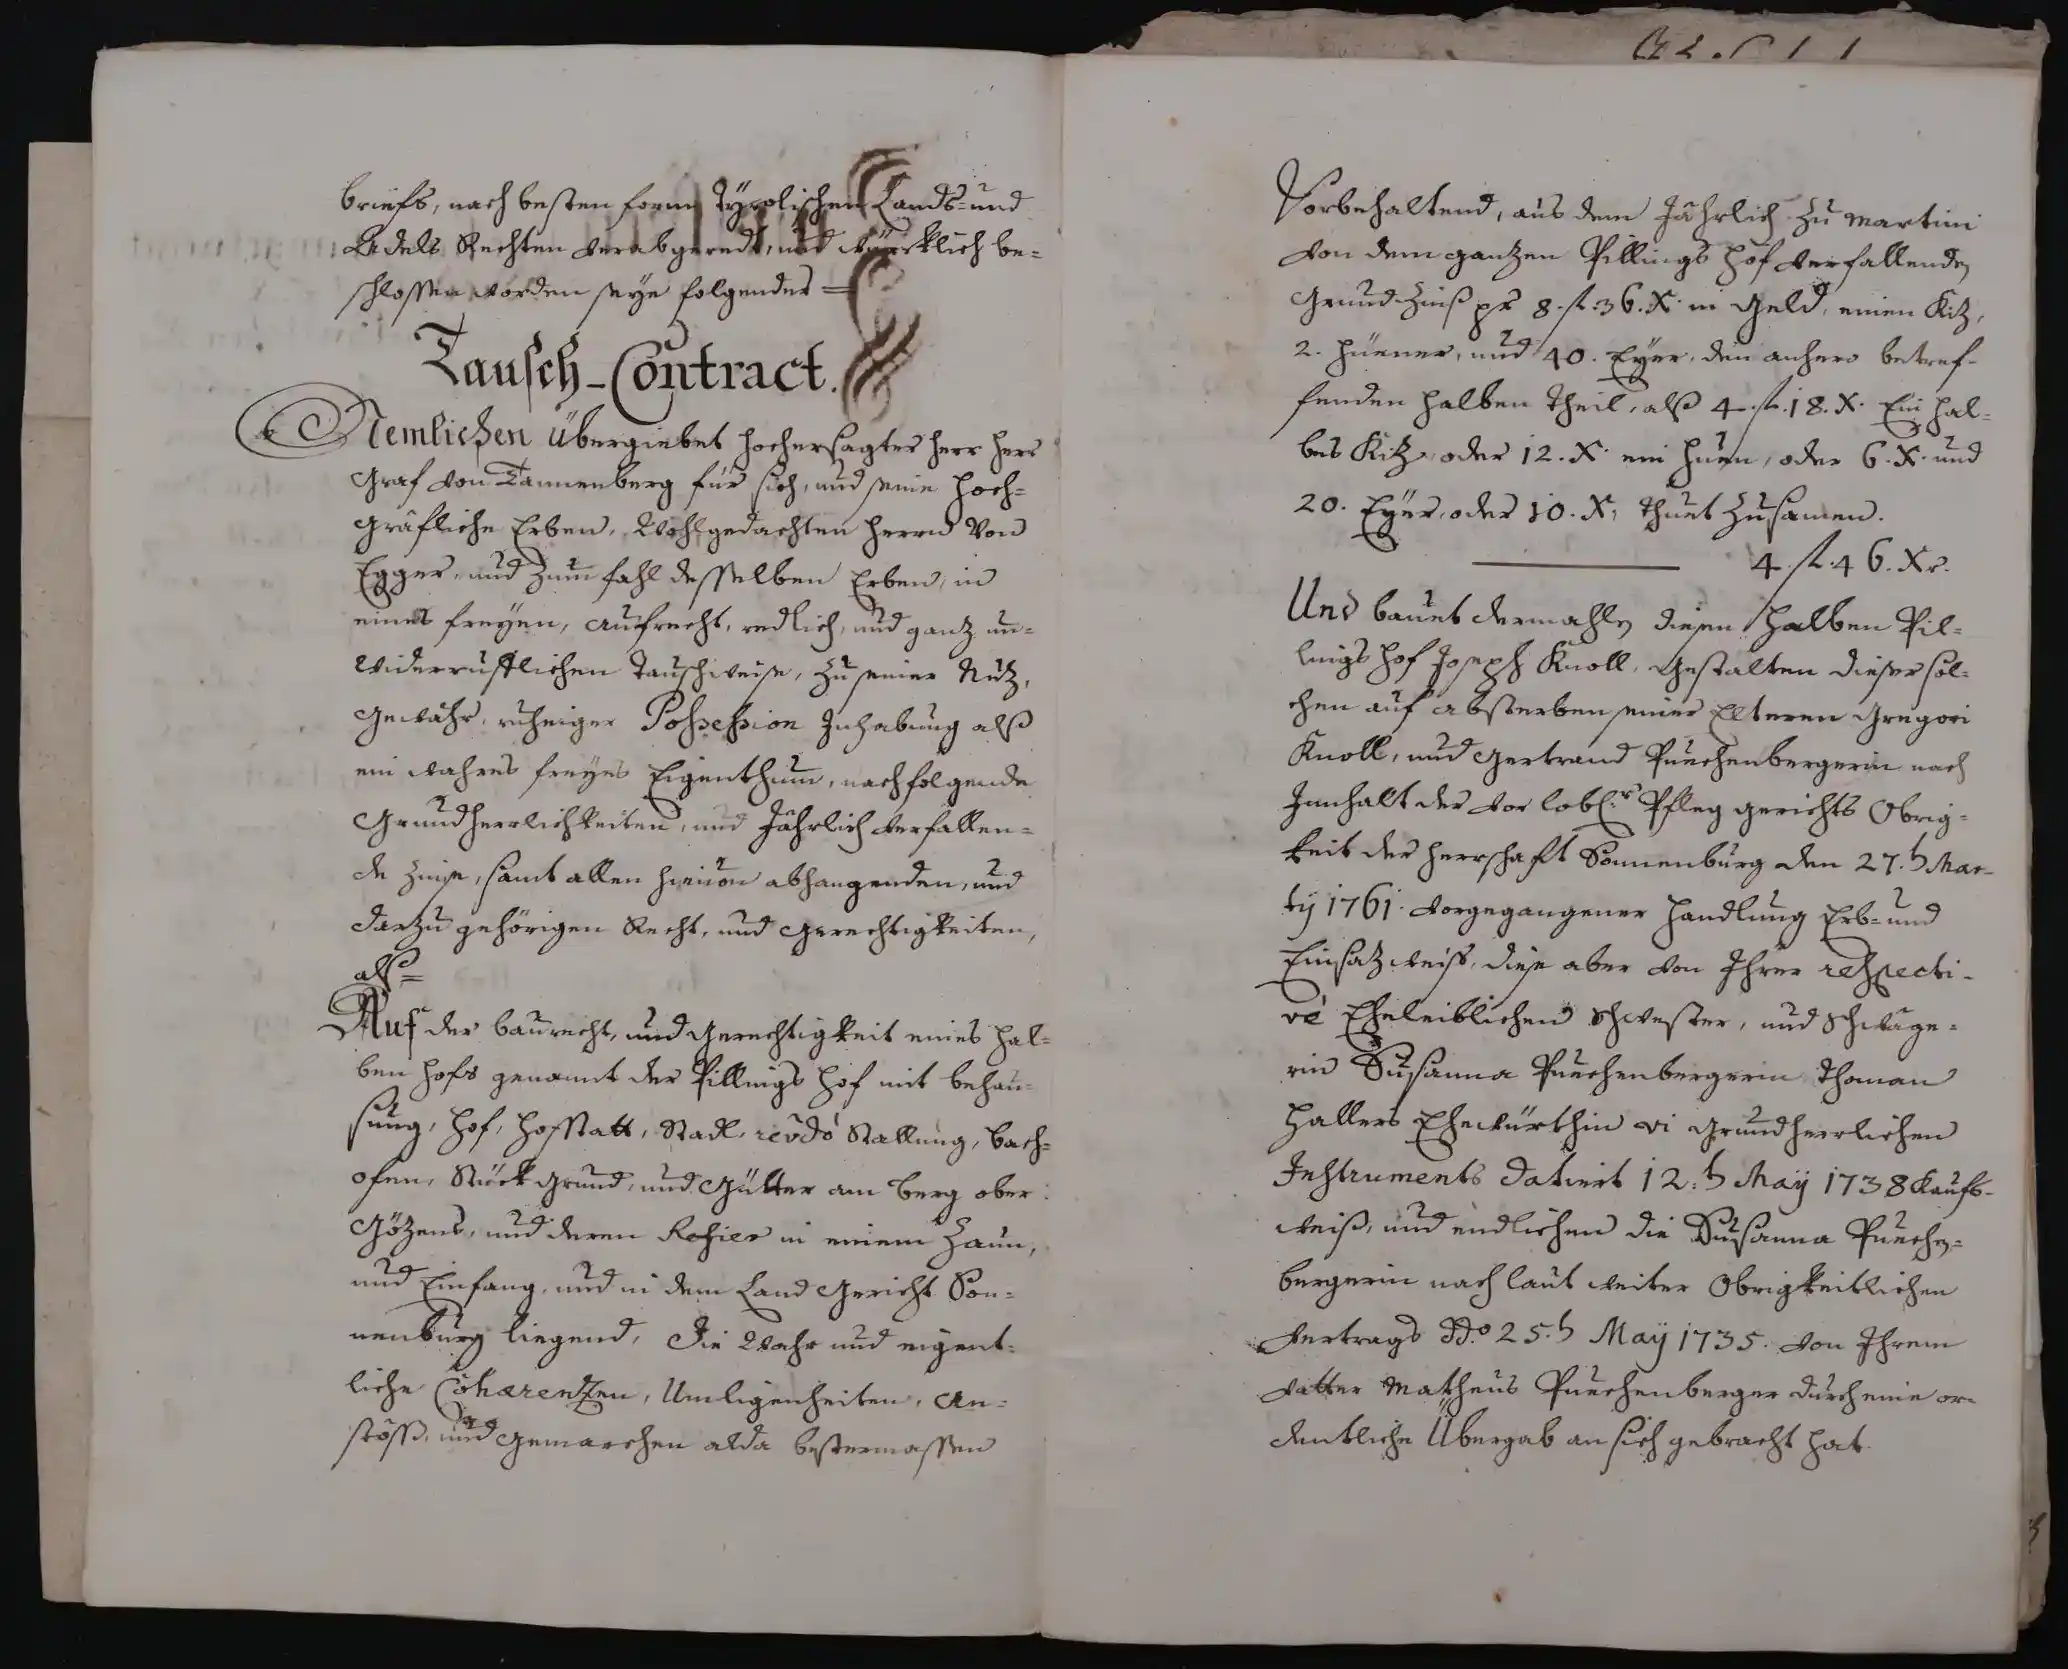 briefs, nach besten form Tÿrolischen Lands- und
Adels Rechten verabgeredt, und würcklich be-
schlossen worden seÿe folgender =
Tausch-Contract.
Nemlichen übergiebet hochersagter Herr Herr
Graf von Tannenberg für sich, und seine hoch-
gräfliche Erben, Wohlgedachten Herrn Von
Egger, und zum fahl desselben Erben, in
eines freÿen, aufrecht, redlich, und ganz un-
widerrufflichen Tauschweise, zu seiner Nuz,
Gewähr, ruheiger Possession Inhabung alß
ein wahres freÿes Eigenthum, nachfolgende
Grundherrlichkeiten, und Jährlich verfallen-
de Zinse, samt allen hievon abhangenden, und
darzu gehörigen Recht, und Gerechtigkeiten,
alß =
Auf der Baurecht, und Gerechtigkeit eines hal-
ben Hofs genannt der Pillings Hof mit behau-
sung, Hof, Hofstatt, Stadl, revdò Stallung, bach-
ofen, Stuck Grund, und Gütter am Berg ober
Gözens, und deren Refier in einem Zaun,
und Einfang, und in dem Land Gericht Son-
nenburg liegend, Die Wahr und eigent-
liche Cohærenzen, Umligenheiten, An-
stöss, und Gemarchen alda bestermassen
Vorbehaltend, aus dem Jährlich zu Martini
von dem ganzen Pillings Hof verfallenden
Grund-Zinß pr 8. fl. 36. X. in Geld, einen Kiz,
2. Hüener, und 40. Eÿer, den anhero betref-
fenden halben Theil, alß 4. fl. 18. X. Ein hal-
bes Kiz, oder 12. X. ein Huen, oder 6. X. und
20. Eÿer, oder 10. X, thuet Zusamen.
4. fl. 46. Xr.
Und bauet dermahlen diesen halben Pil-
lings Hof Joseph Knoll, Gestalten dieser sol-
chen auf absterben seiner Elteren Gregori
Knoll, und Gertraud Puechenbergerin nach
Innhalt der vor lobl.r Pfleg Gerichts Obrig-
keit der Herrschaft Sonnenburg den 27.t Mar-
tÿ 1761. vorgegangener Handlung Erb- und
Einsazweiß, diese aber von Ihrer respecti-
vè Eheleiblichen Schwester, und Schwäge-
rin Susanna Puechenbergerin Thoman
Hallers Ehewürthin vi Grundherrlichen
Instruments datiert 12.t Maÿ 1738 Kaufs-
weiß, und endlichen die Susanna Puechen-
bergerin nach laut weiter Obrigkeitlichen
Vertrags dd.o 25.t Maÿ 1735. von Ihrem
Vatter Matheus Puechenberger durch eine or-
dentliche Übergab an sich gebracht hat.